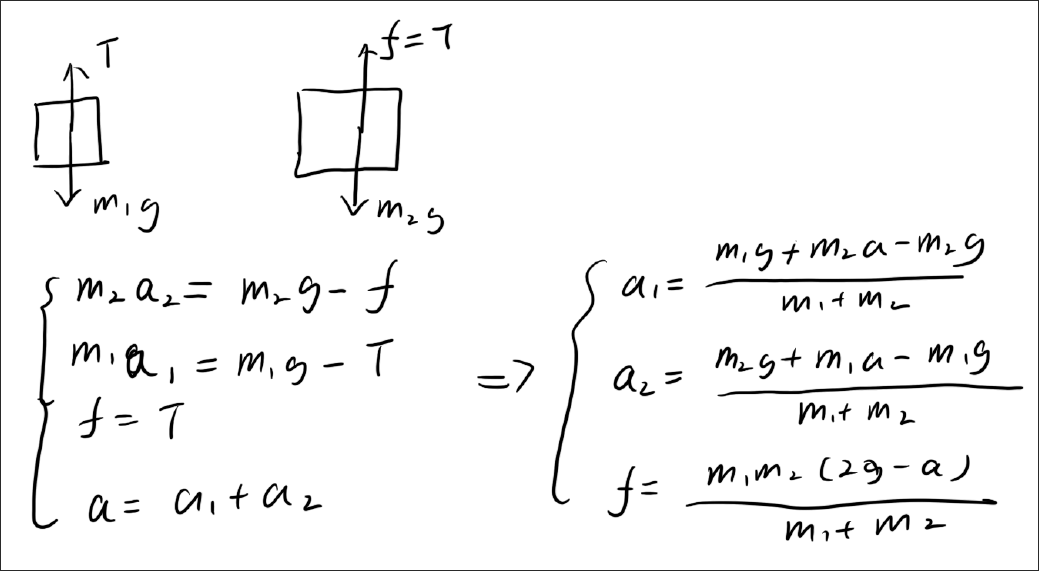 T
f=T
m₁g
m₂g
m₂a₂= m₂g- f
m₁a₁ = m₁g - T
f= T
a= a₁+a₂
=>
a₁= (m₁g+m₂a-m₂g)/(m₁+m₂)
a₂= (m₂g+m₁a-m₁g)/(m₁+m₂)
f= (m₁m₂(2g-a))/(m₁+m₂)